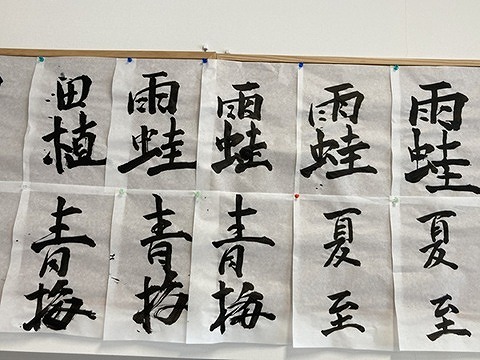 雨蛙
雨蛙
雨蛙
雨蛙
田植
夏至
夏至
青梅
青梅
青梅